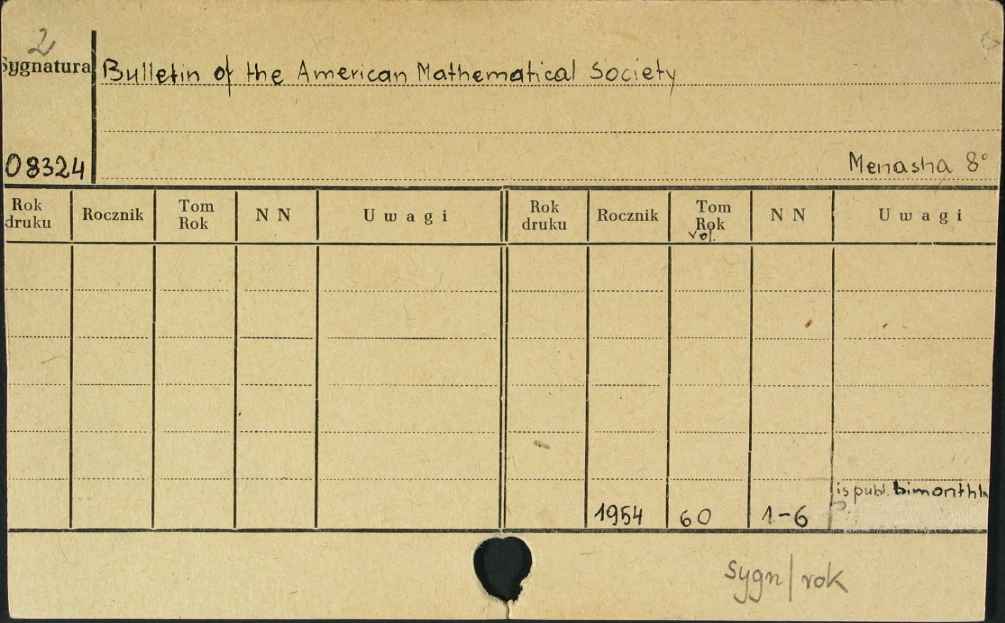 2
Sygnatura Bulletin of the American Mathematical Society
08324 Menasha 8°
Rok druku Rocznik Tom Rok N N Uwagi Rok druku Rocznik Tom Rok vol. N N Uwagi
is publ. bimonthly
1954 60 1-6
sygn/rok